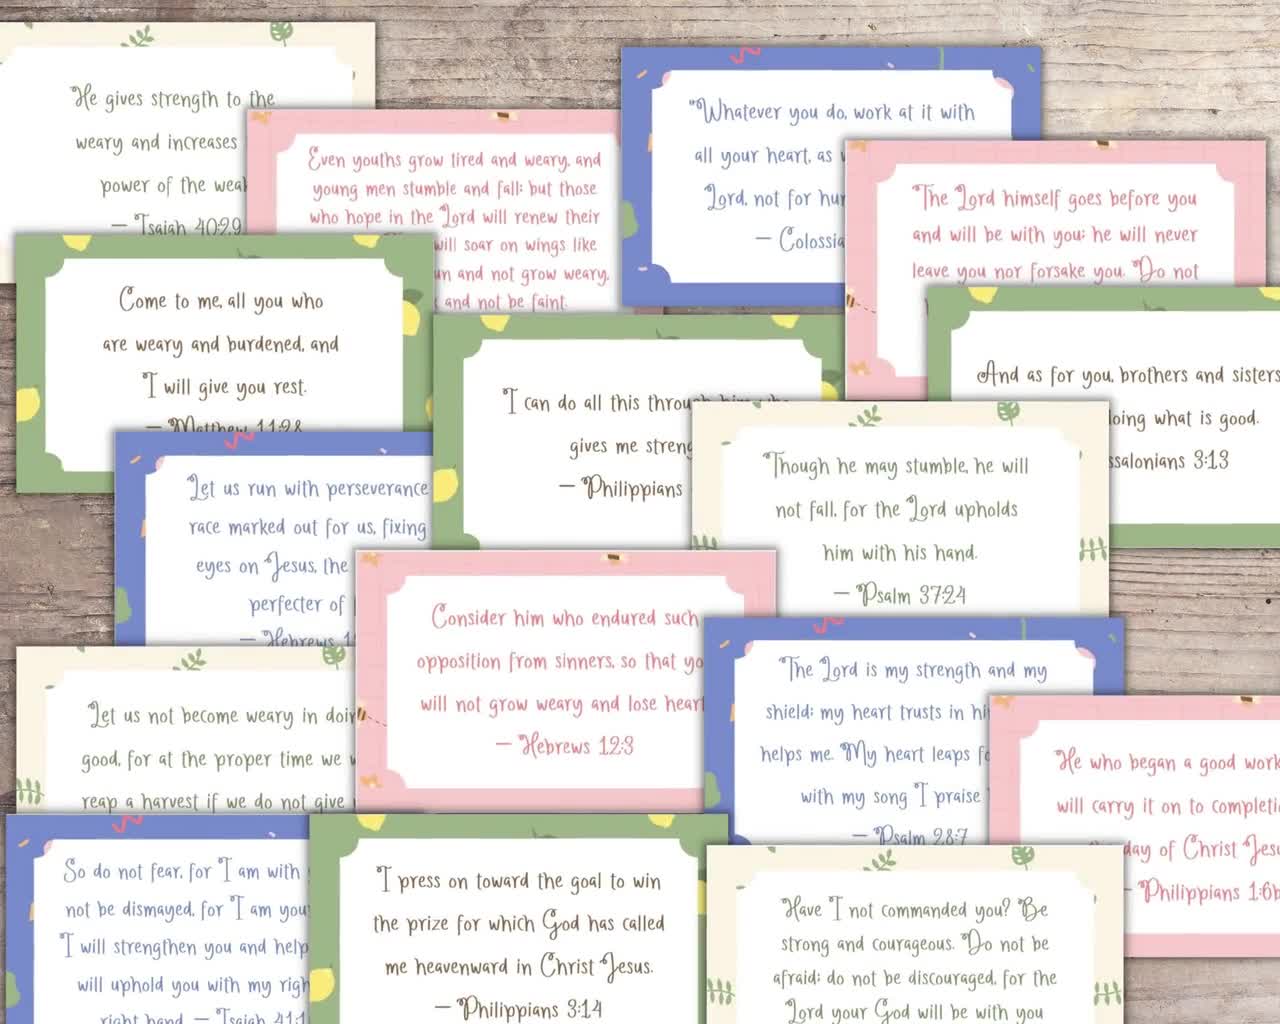 He gives strength to the
weary and increases
power of the weak
— Isaiah 40:29
Even youths grow tired and weary, and
young men stumble and fall; but those
who hope in the Lord will renew their
will soar on wings like
and not grow weary,
and not be faint.
"Whatever you do, work at it with
all your heart, as
Lord, not for
— 
The Lord himself goes before you
and will be with you; he will never
leave you nor forsake you. Do not
Come to me, all you who
are weary and burdened, and
I will give you rest.
— Matthew 11:28
I can do all this through him who
gives me
— Philippians
And as for you, brothers and sisters
what is good.
3:13
Though he may stumble, he will
not fall, for the Lord upholds
him with his hand.
— Psalm 37:24
Let us run with perseverance
race marked out for us, fixing
eyes on Jesus, the
perfecter of
— Hebrews
Consider him who endured such
opposition from sinners, so that
will not grow weary and lose heart
— Hebrews 12:3
Let us not become weary in
good, for at the proper time we
reap a harvest if we do not give
The Lord is my strength and my
shield; my heart trusts in
helps me. My heart leaps
with my song I praise
— Psalm 28:7
He who began a good work
will carry it on to
day of Christ
— Philippians 1:6b
So do not fear, for I am with
not be dismayed, for I am
I will strengthen you and help
will uphold you with my
right hand. — Isaiah
I press on toward the goal to win
the prize for which God has called
me heavenward in Christ Jesus.
— Philippians 3:14
Have I not commanded you? Be
strong and courageous. Do not be
afraid; do not be discouraged, for the
Lord your God will be with you